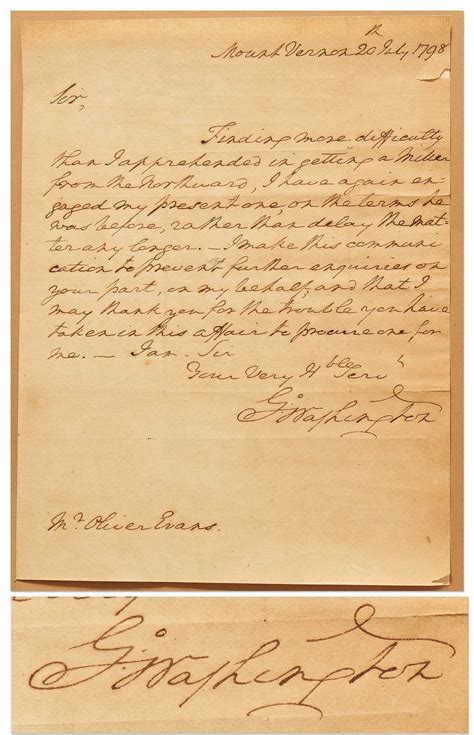 Mount Vernon 20th July 1798
Sir,
Finding more difficulty
than I apprehended in getting a Miller
from the Northward, I have again en-
gaged my present one, on the terms he
was before, rather than delay the mat-
ter any longer. — I make this communi
cation to prevent further enquiries on
your part, on my behalf, and that I
may thank you for the trouble you have
taken in this affair to procure one for
me. — I am - Sir
Your Very Hble Servt
G:Washington
Mr. Oliver Evans.
G:Washington